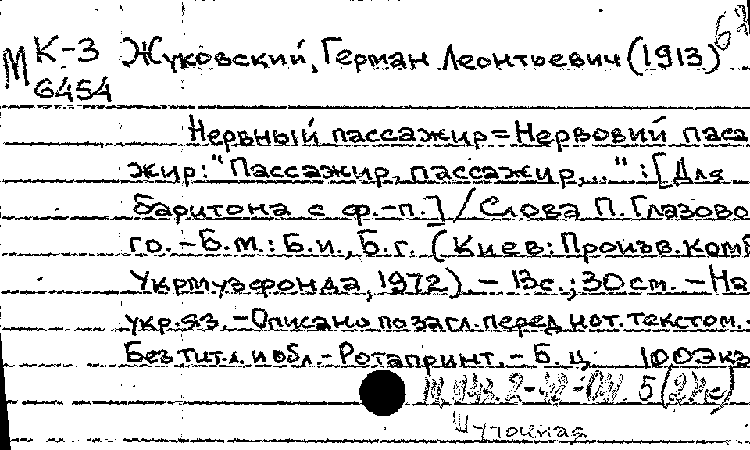 М К-3 Жуковский, Герман Леонтьевич (1913)
6454
Нервный пассажир = Нервовий паса
жир: "Пассажир, пассажир,..." : [Для
баритона с ф.-п.] / Слова П. Глазово
го. – Б.м. : Б.и., Б.г. (Киев: Произв. комб
Укрмузфонда, 1972). – 13 с.; 30 см. – На
укр. яз. – Описано по загл. перед нот. текстом. –
Без тит. л. и обл. – Ротапринт. – Б. ц. 100 экз
Шуточная